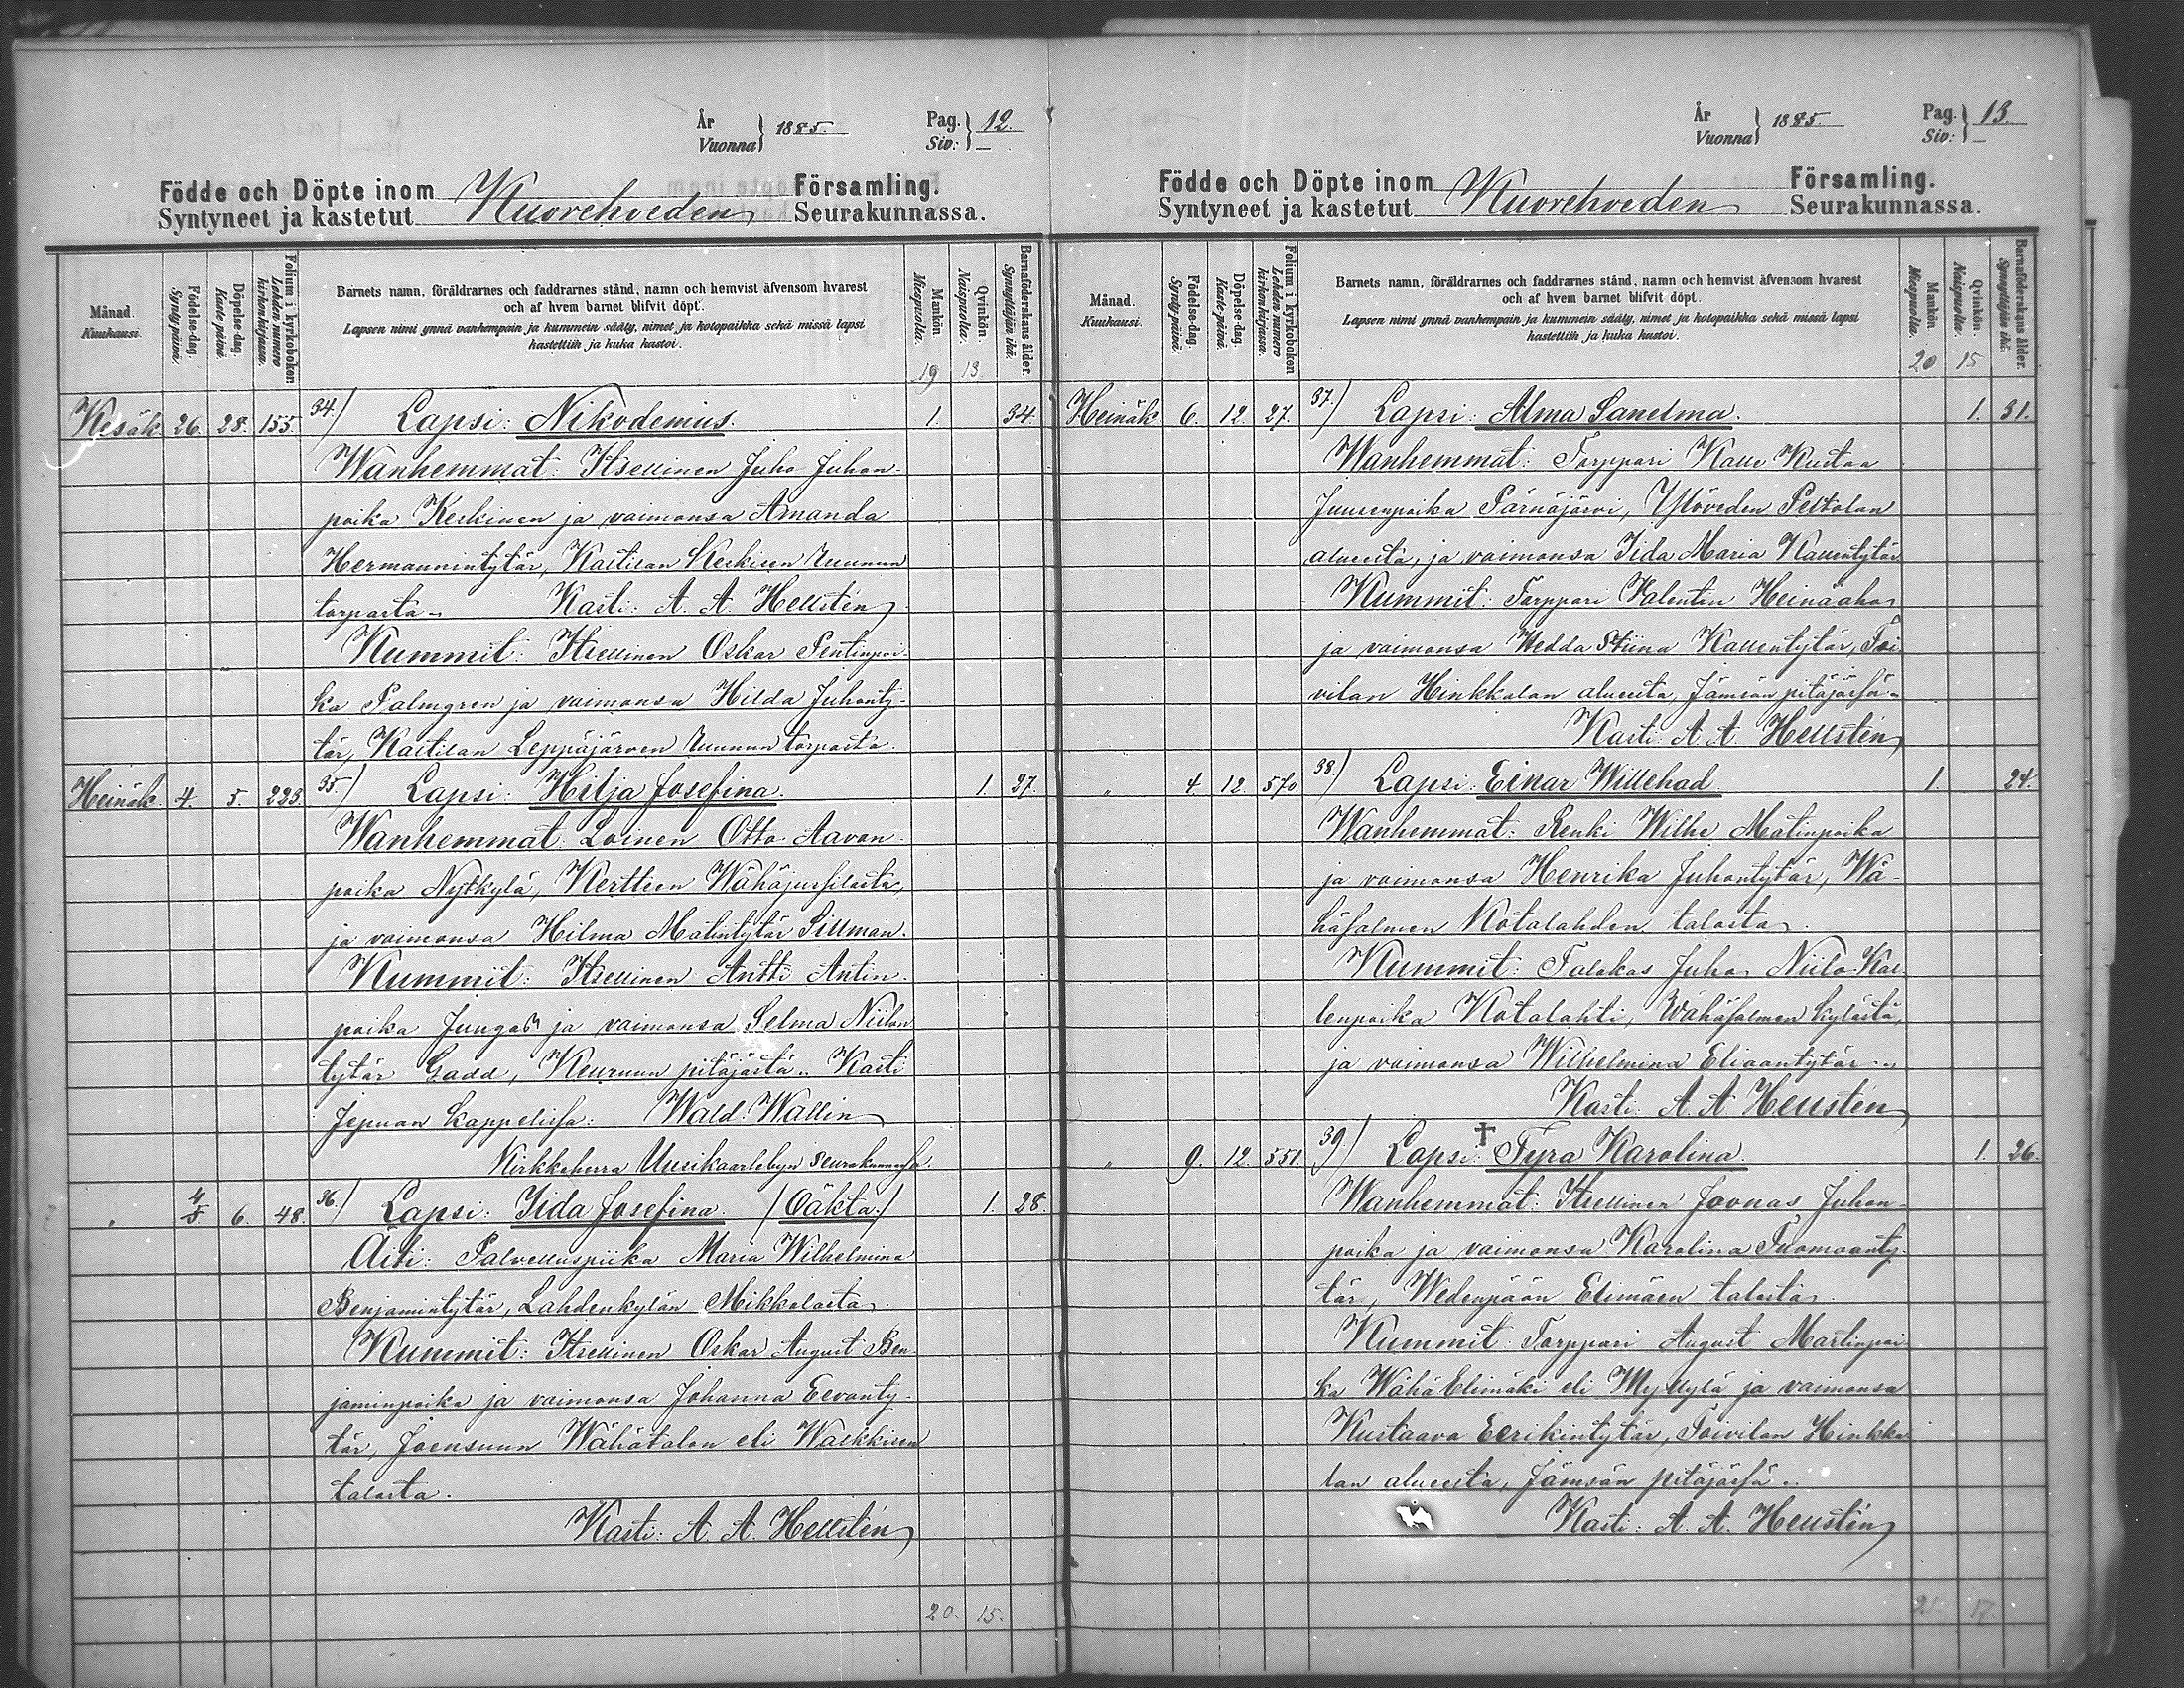 År
Vuonna } 1885.
Pag.
Siv: } 12.
Födde och Döpte inom Kuorehveden Församling.
Syntyneet ja kastetut Seurakunnassa.
Månad.
Kuukausi.
Födelse-dag.
Synty päivä.
Döpelse-dag.
Kaste päivä.
Folium i kyrkoboken.
Lehden numero kirkonkirjassa.
Barnets namn, föräldrarnes och faddrarnes stånd, namn och hemvist äfvensom hvarest
och af hvem barnet blifvit döpt.
Lapsen nimi ynnä vanhempain ja kummein sääty, nimet ja kotopaikka sekä missä lapsi
kastettiin ja kuka kastoi.
Mankön.
Miespuolia.
Qvinkön.
Naispuolia.
Barnaföderskans ålder.
Synnyttäjän ikä.
19 13.
Kesäk 26. 28. 155 34.) Lapsi: Nikodemus. 1. 34.
Wanhemmat: Itsellinen Juho Juhon-
poika Keskinen ja vaimonsa Amanda
Hermannintytär, Kaitilan Keskisen Uunun
torpasta. Kasti: A. A. Hellstén
Kummit: Itsellinen Oskar Penttinpoi-
ka Palmgren ja vaimonsa Hilda Juhonty-
tär, Kaitilan Leppäjärven Uunun torpasta.
Heinäk 4. 5. 223. 35.) Lapsi: Hilja Josefina. 1. 27.
Wanhemmat: Loinen Otto Aavon-
poika Nytkylä, Kerttuen
ja vaimonsa Hilma Matintytär Sillman.
Kummit: Itsellinen Antti Antin-
poika ja vaimonsa Selma Niilon
tytär Gadd, Keuruun pitäjästä. Kasti
Jepuan kappelissa: Wald. Wallin
Kirkkoherra Uusikaarlebyn seurakunnassa.
" 4/5 6. 48. 36.) Lapsi: Iida Josefina. (Oäkta.) 1. 28.
Äiti: Palvelluspiika Maria Wilhelmina
Benjamintytär, Lahdenkylän Mikkolasta.
Kummit: Itsellinen Oskar August Ben-
jaminpoika ja vaimonsa Johanna Eevanty-
tär, Joensuun Wähätalon eli Waskkisen
talosta.
Kasti: A. A. Hellstén
20. 15.
År
Vuonna } 1885.
Pag.
Siv: } 13.
Födde och Döpte inom Kuorehveden Församling.
Syntyneet ja kastetut Seurakunnassa.
Månad.
Kuukausi.
Födelse-dag.
Synty päivä.
Döpelse-dag.
Kaste päivä.
Folium i kyrkoboken
Lehden numero kirkonkirjassa.
Barnets namn, föräldrarnes och faddrarnes stånd, namn och hemvist äfvensom hvarest
och af hvem barnet blifvit döpt.
Lapsen nimi ynnä vanhempain ja kummein sääty, nimet ja kotopaikka sekä missä lapsi
kastettiin ja kuka kastoi.
Mankön.
Miespuolia.
Qvinkön.
Naispuolia.
Barnaföderskans ålder.
Synnyttäjän ikä.
20 15.
Heinäk. 6. 12. 27. 37.) Lapsi: Alma Sanelma. 1. 31.
Wanhemmat: Torppari Kalle Kustaa
Juusenpoika Pärnäjärvi, Ylöveden Peltolan
alueesta, ja vaimonsa Iida Maria Kallentytär
Kummit: Torppari Valentin Heinäaho
ja vaimonsa Hedda Stiina Kallentytär, Toi
vilan Hinkkalan alueesta, Jämsän pitäjässä.
Kasti: A. A. Hellstén
" 4 12. 570. 38.) Lapsi: Einar Willehad 1. 24.
Wanhemmat: Renki Wilhe Matinpoika
ja vaimonsa Henrika Juhontytär, Wä-
häsalmen Kotalahden talosta.
Kummit: Talokas Juho Niilo Kal-
lenpoika Kotalahti, Wähäsalmen kylästä,
ja vaimonsa Wilhelmina Eliaantytär.
Kasti: A. A. Hellstén
" 9. 12. 551. 39.) Lapsi: † Tyra Karolina. 1. 26.
Wanhemmat: Itsellinen Joonas Juhon-
poika ja vaimonsa Karolina Tuomaanty-
tär, Wedenpään Elimäen talosta.
Kummit: Torppari August Martinpoi-
ka Wähä Elimäki eli Myllylä ja vaimonsa
Kustaava Eerikintytär, Toivilan Hinkka-
lan alueesta, Jämsän pitäjässä.
Kasti: A. A. Hellstén
21. 17.